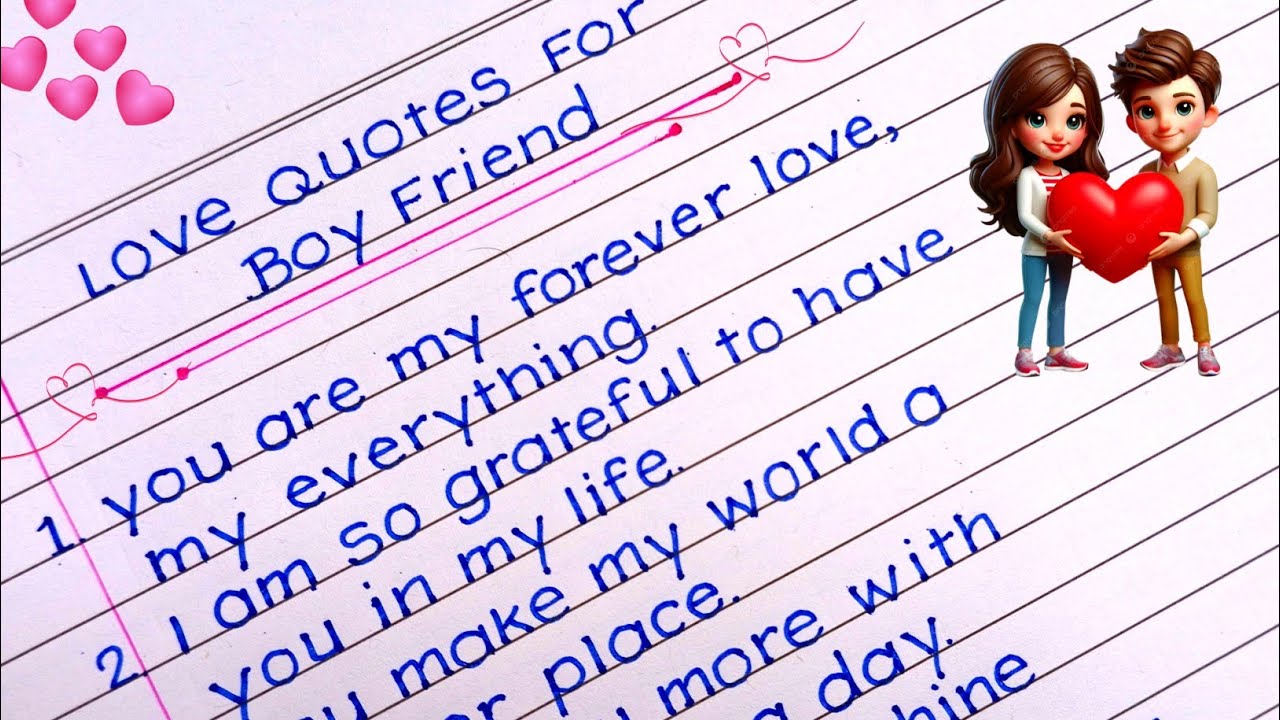 Love Quotes For
Boy Friend
1. you are my forever love,
my everything.
2. I am so grateful to have
you in my life.
make my world a
place.
more with
day.